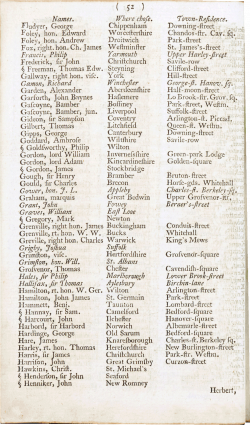 ( 52 )
Names. Where chose. Town-Residence.
Fludyer, George Chippenham Downing-street
Foley, hon. Edward Worcestershire
Foley, hon. Andrew Droitwich Park-street
Fox, right. hon. Ch. James Westminster St. James's-street
Francis, Philip Yarmouth Upper Harley-street
Frederick, sir John Christchurch Savile-row
§ Freeman, Thomas Edw. Steyning Clifford-street
Gallway, right hon. visc. York Hill-street
Gamon, Richard Winchester George-st. Hanov. sq.
Garden, Alexander Aberdeenshire Half-moon-street
Garforth, John Bynes Haslemere
Gascoyne, Bamber Bossiney Park-street, Westm.
Gascoyne, Bamber, jun. Liverpool Suffolk-street
Gideon, sir Sampson Coventry Arlington-st. Piccad.
Gilbert, Thomas Litchfield Queen-st. Westm.
Gipps, George Canterbury Downing-street
Goddard, Ambrose Wiltshire Savile-row
§ Goldworthy, Philip Wilton
Gordon, lord William Invernesshire Green-park Lodge
Gordon, lord Adam Kincardineshire Golden-square
§ Gordon, James Stockbridge
Gough, sir Henry Bramber Bruton-street
Gould, sir Charles Brecon Horse-gds. Whitehall
Gower, hon. J. L. Appleby Charles-st. Berkeley sq.
Graham, marquis Great Bedwin Upper Grosvenor-st.
Grant, John Fowey Berner's-street
Graves, William East Looe
§ Gregory, Mark Newton
Grenville, right hon. James Buckingham Conduit-street
Grenville, rt. hon. W. W. Bucks Whitehall
Greville, right hon. Charles Warwick King's Mews
Grigby, Joshua Suffolk
Grimston, visc. Hertfordshire Grosvenor-square
Grimston, hon. Will. St. Albans
Grosvenor, Thomas Chester Cavendish-square
Hales, sir Philip Marlborough Lower Brook-street
Hallifax, sir Thomas Aylesbury Birchin-lane
Hamilton, rt. hon. W. Ger. Wilton Arlington-street
Hamilton, John James St. Germain Park-street
Hammet, Benj. Taunton Lombard-street
§ Hanmy, sir Sam. Camelford Bedford-square
§ Harcourt, John Ilchester Hanover-square
Harbord, sir Harbord Norwich Albemarle-street
Hardinge, George Old Sarum Bedford-square
Hare, James Knaresborough Charles-st. Berkeley sq.
Harley, rt. hon. Thomas Herefordshire New Burlington-street
Harris, sir James Christchurch Park-str. Westm.
Harrison, John Great Grimsby Curzon-street
Hawkins, Christ. St. Michael's
§ Henderson, sir John Seaford
§ Henniker, John New Romney
Herbert,